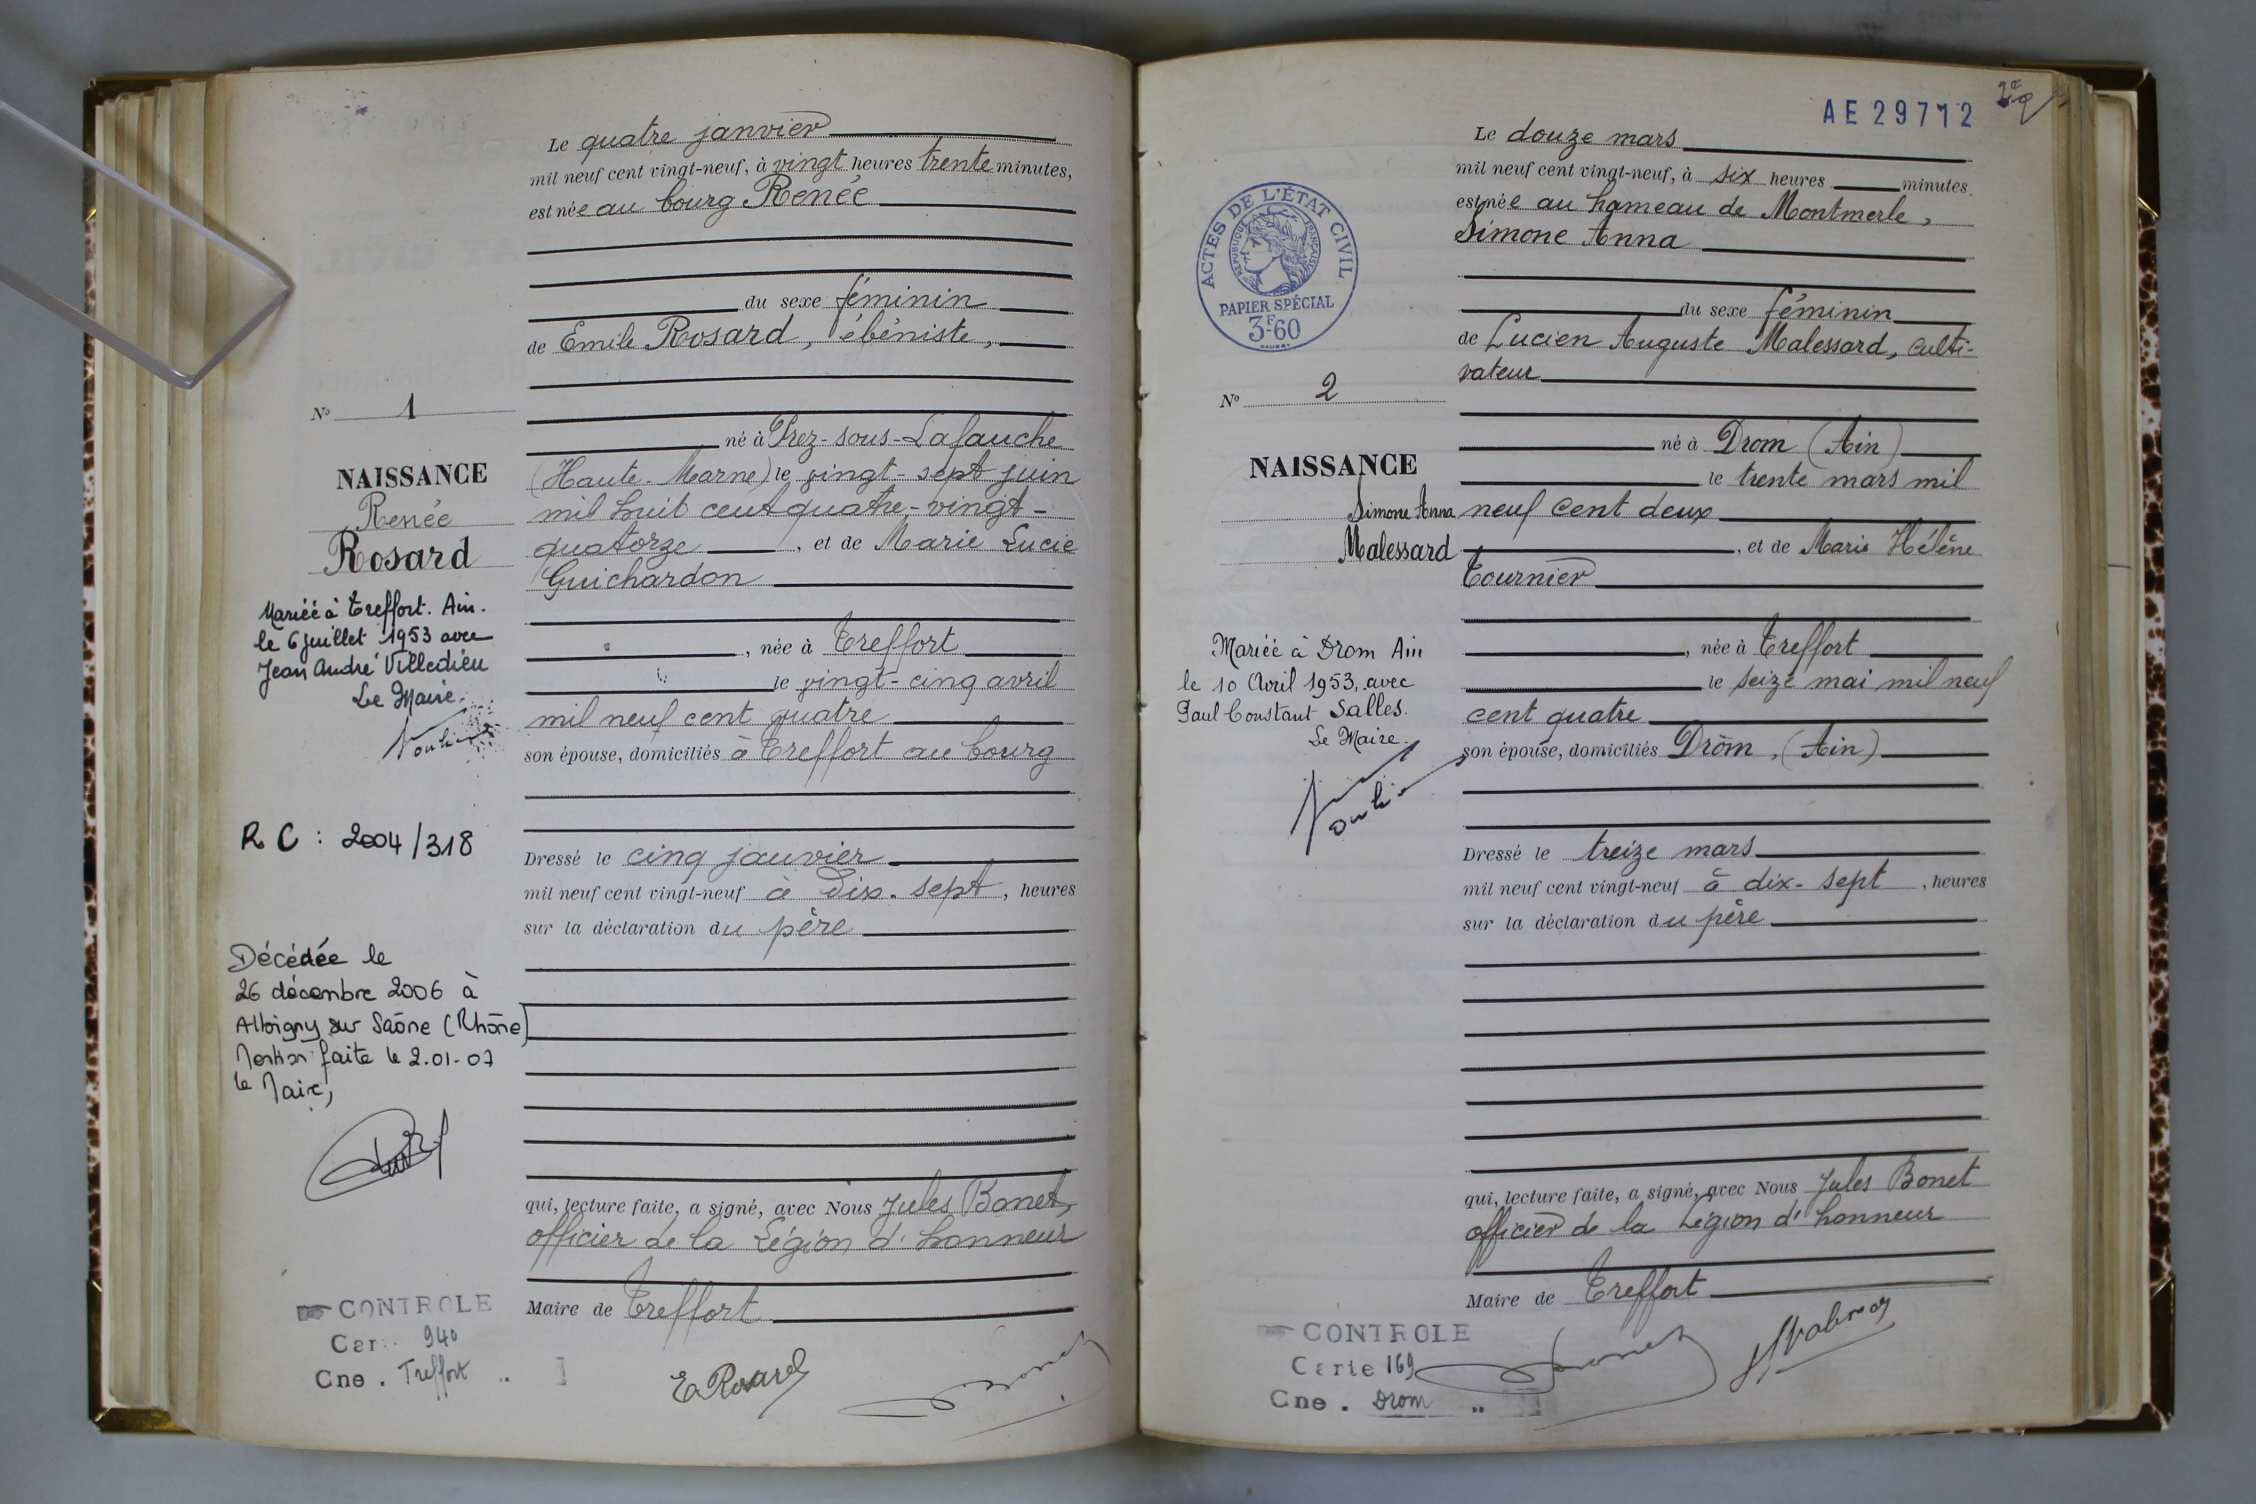 Le quatre janvier
mil neuf cent vingt-neuf, à vingt heures trente minutes,
est née au bourg Renée
du sexe féminin
de Emile Rosard, ébéniste,
né à Prez-sous-Lafauche
(Haute-Marne) le vingt-sept juin
mil huit cent quatre-vingt-
quatorze, et de Marie Lucie
Guichardon
, née à Treffort
le vingt-cinq avril
mil neuf cent quatre
son épouse, domiciliés à Treffort au bourg
Dressé le cinq janvier
mil neuf cent vingt-neuf à dix-sept, heures
sur la déclaration du père
qui, lecture faite, a signé, avec Nous Jules Bonet,
officier de la Légion d'honneur
Maire de Treffort
E Rosard
N° 1
NAISSANCE
Renée
Rosard
Mariée à Treffort. Ain.
le 6 juillet 1953 avec
Jean André Villedieu
Le Maire.
RC : 2004/318
Décédée le
26 décembre 2006 à
Albigny sur Saône (Rhône)
Mention faite le 2.01-07
le Maire,
CONTROLE
Car. 940
Cne. Treffort
AE29712
Le douze mars
mil neuf cent vingt-neuf, à six heures minutes
est née au hameau de Montmerle,
Simone Anna
du sexe féminin
de Lucien Auguste Malessard, culti-
vateur
né à Drom (Ain)
le trente mars mil
neuf cent deux
, et de Marie Hélène
Tournier
, née à Treffort
le seize mai mil neuf
cent quatre
son épouse, domiciliés Drom, (Ain)
Dressé le treize mars
mil neuf cent vingt-neuf à dix-sept, heures
sur la déclaration du père
qui, lecture faite, a signé, avec Nous Jules Bonet
officier de la Légion d'honneur
Maire de Treffort
ACTES DE L'ÉTAT CIVIL
RÉPUBLIQUE FRANÇAISE
PAPIER SPÉCIAL
3F60
N° 2
NAISSANCE
Simone Anna
Malessard
Mariée à Drom Ain
le 10 Avril 1953, avec
Paul Constant Salles.
Le Maire.
CONTROLE
Carte 169
Cne. Drom